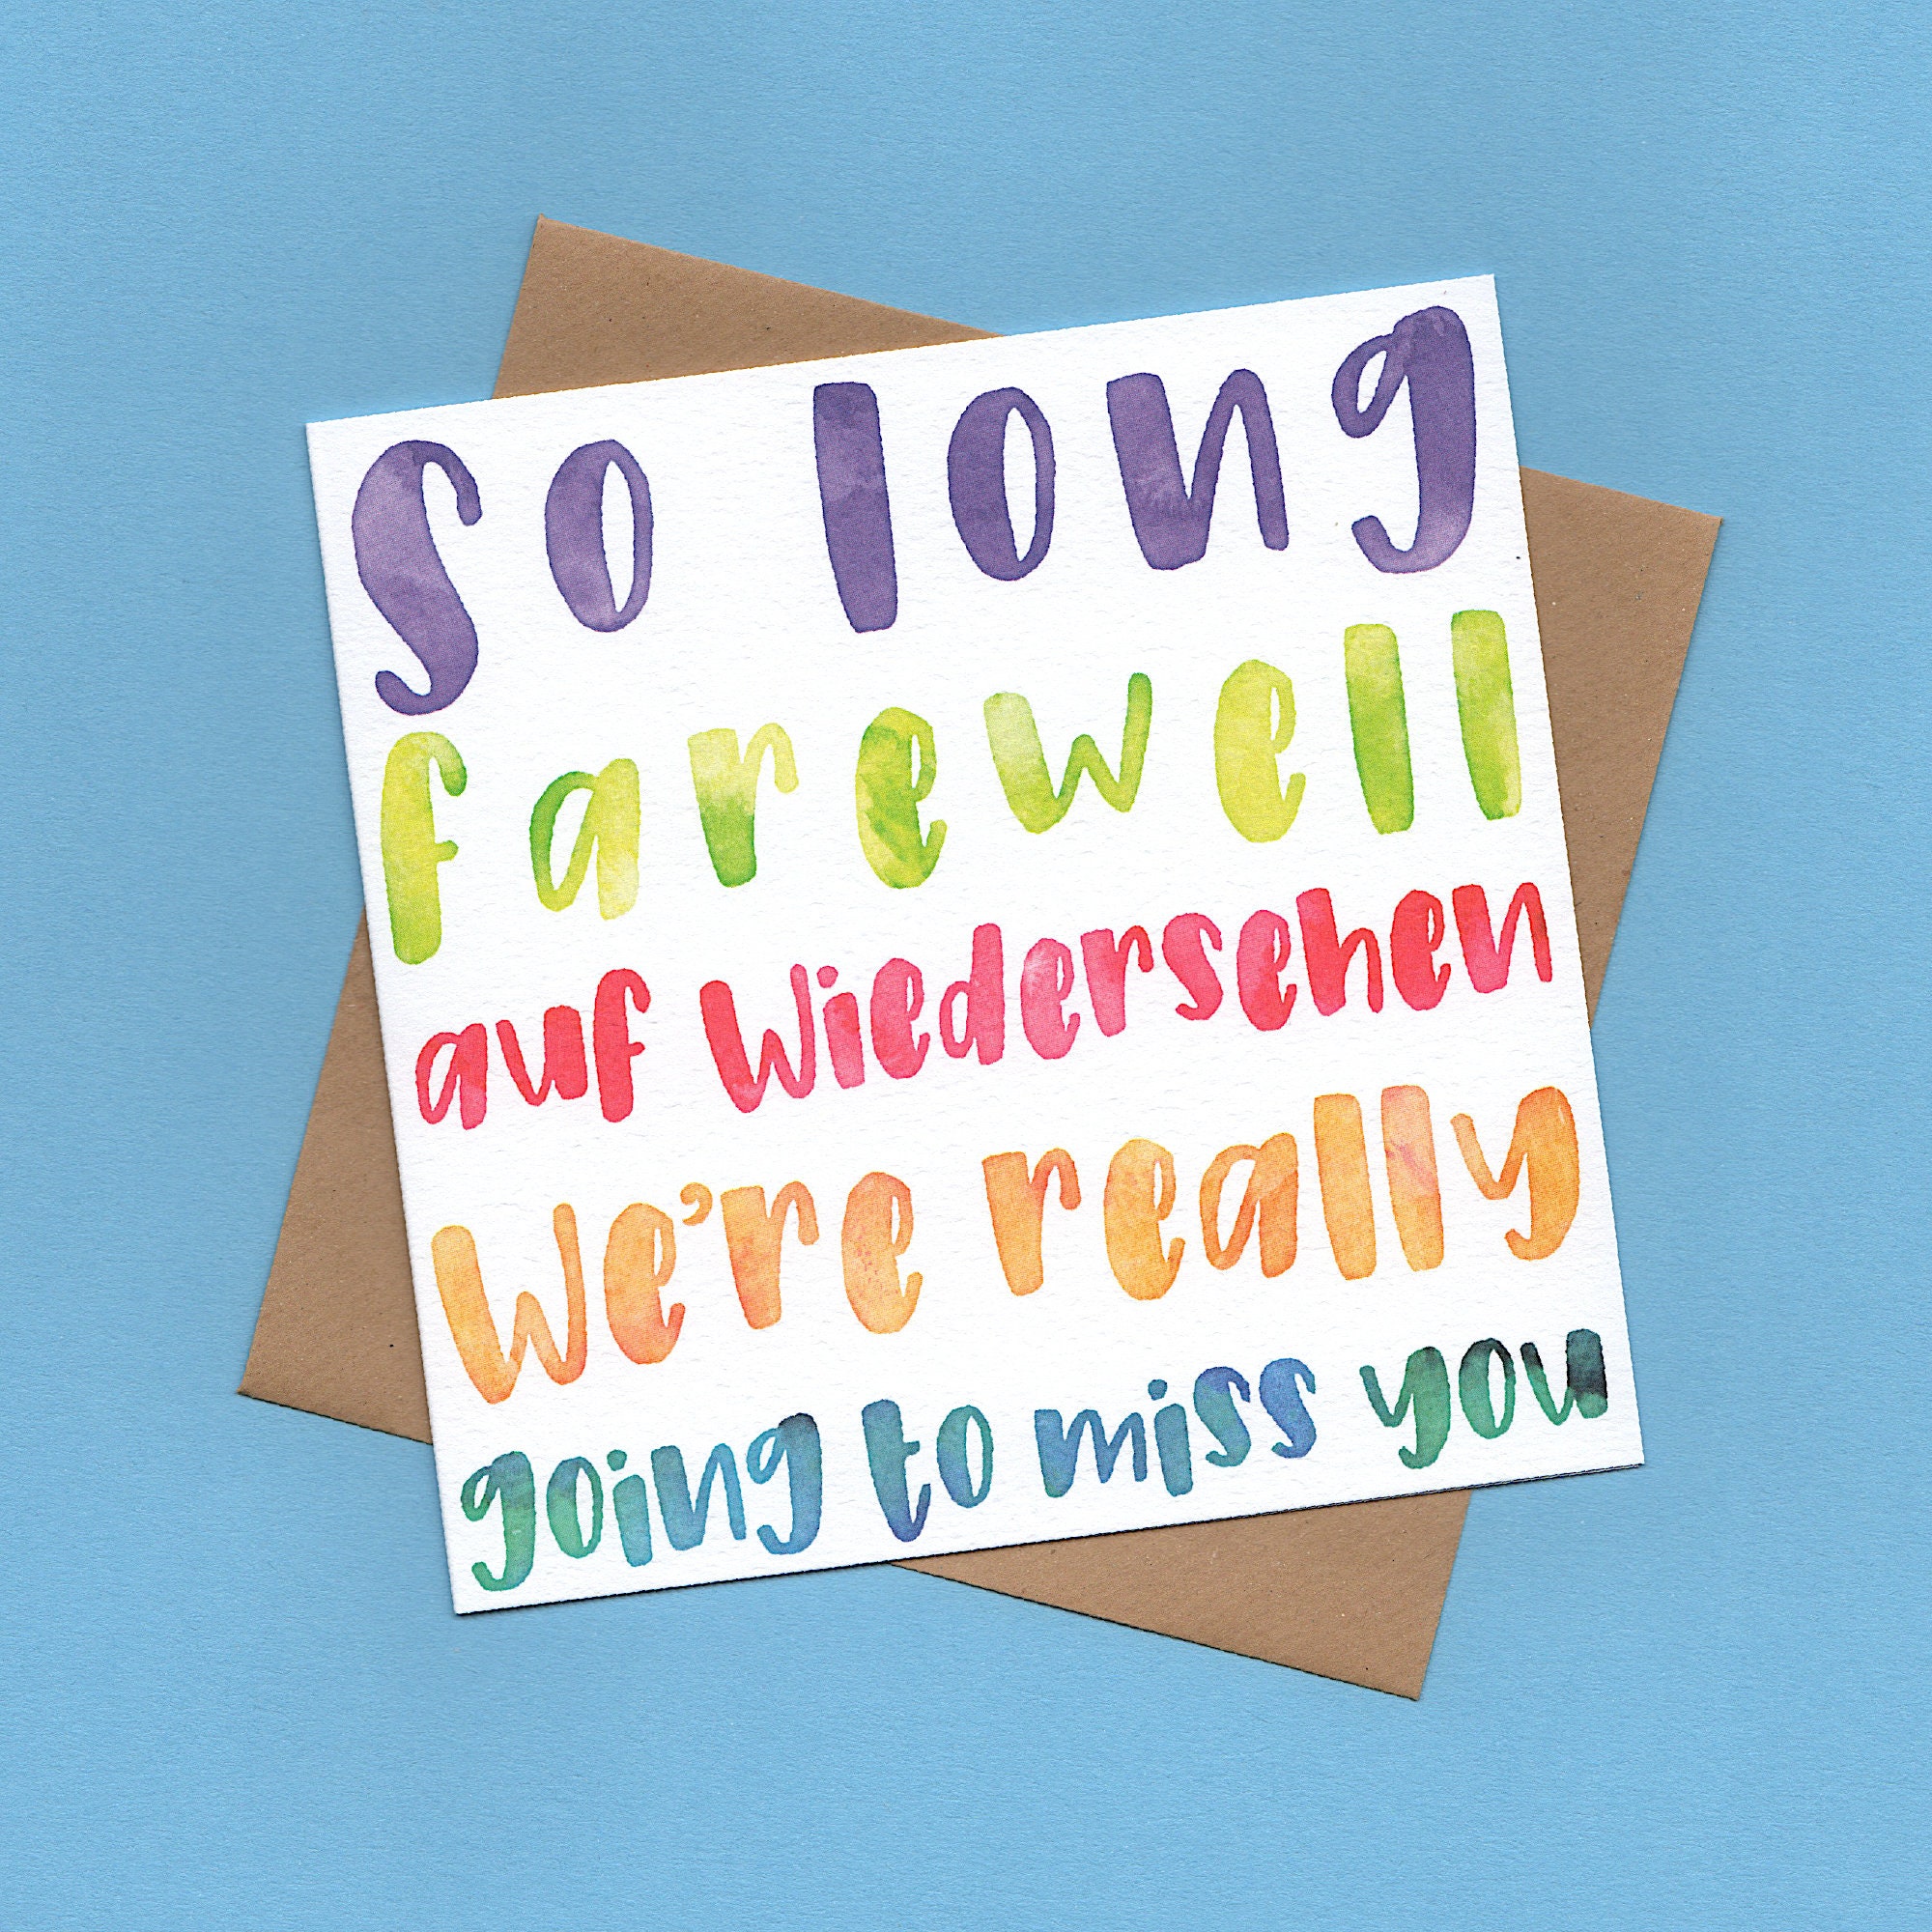 So long
farewell
auf Wiedersehen
We're really
going to miss you